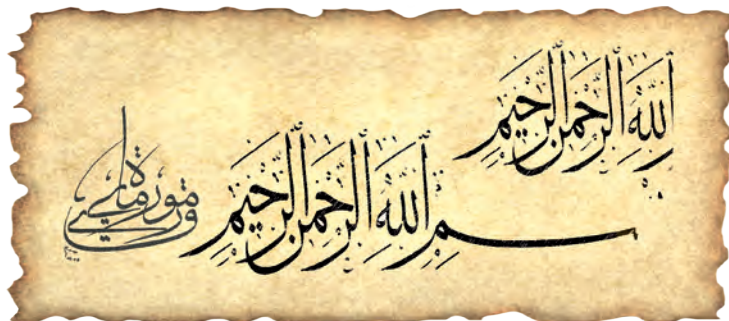 الله الرحمن الرحيم
بسم الله الرحمن الرحيم